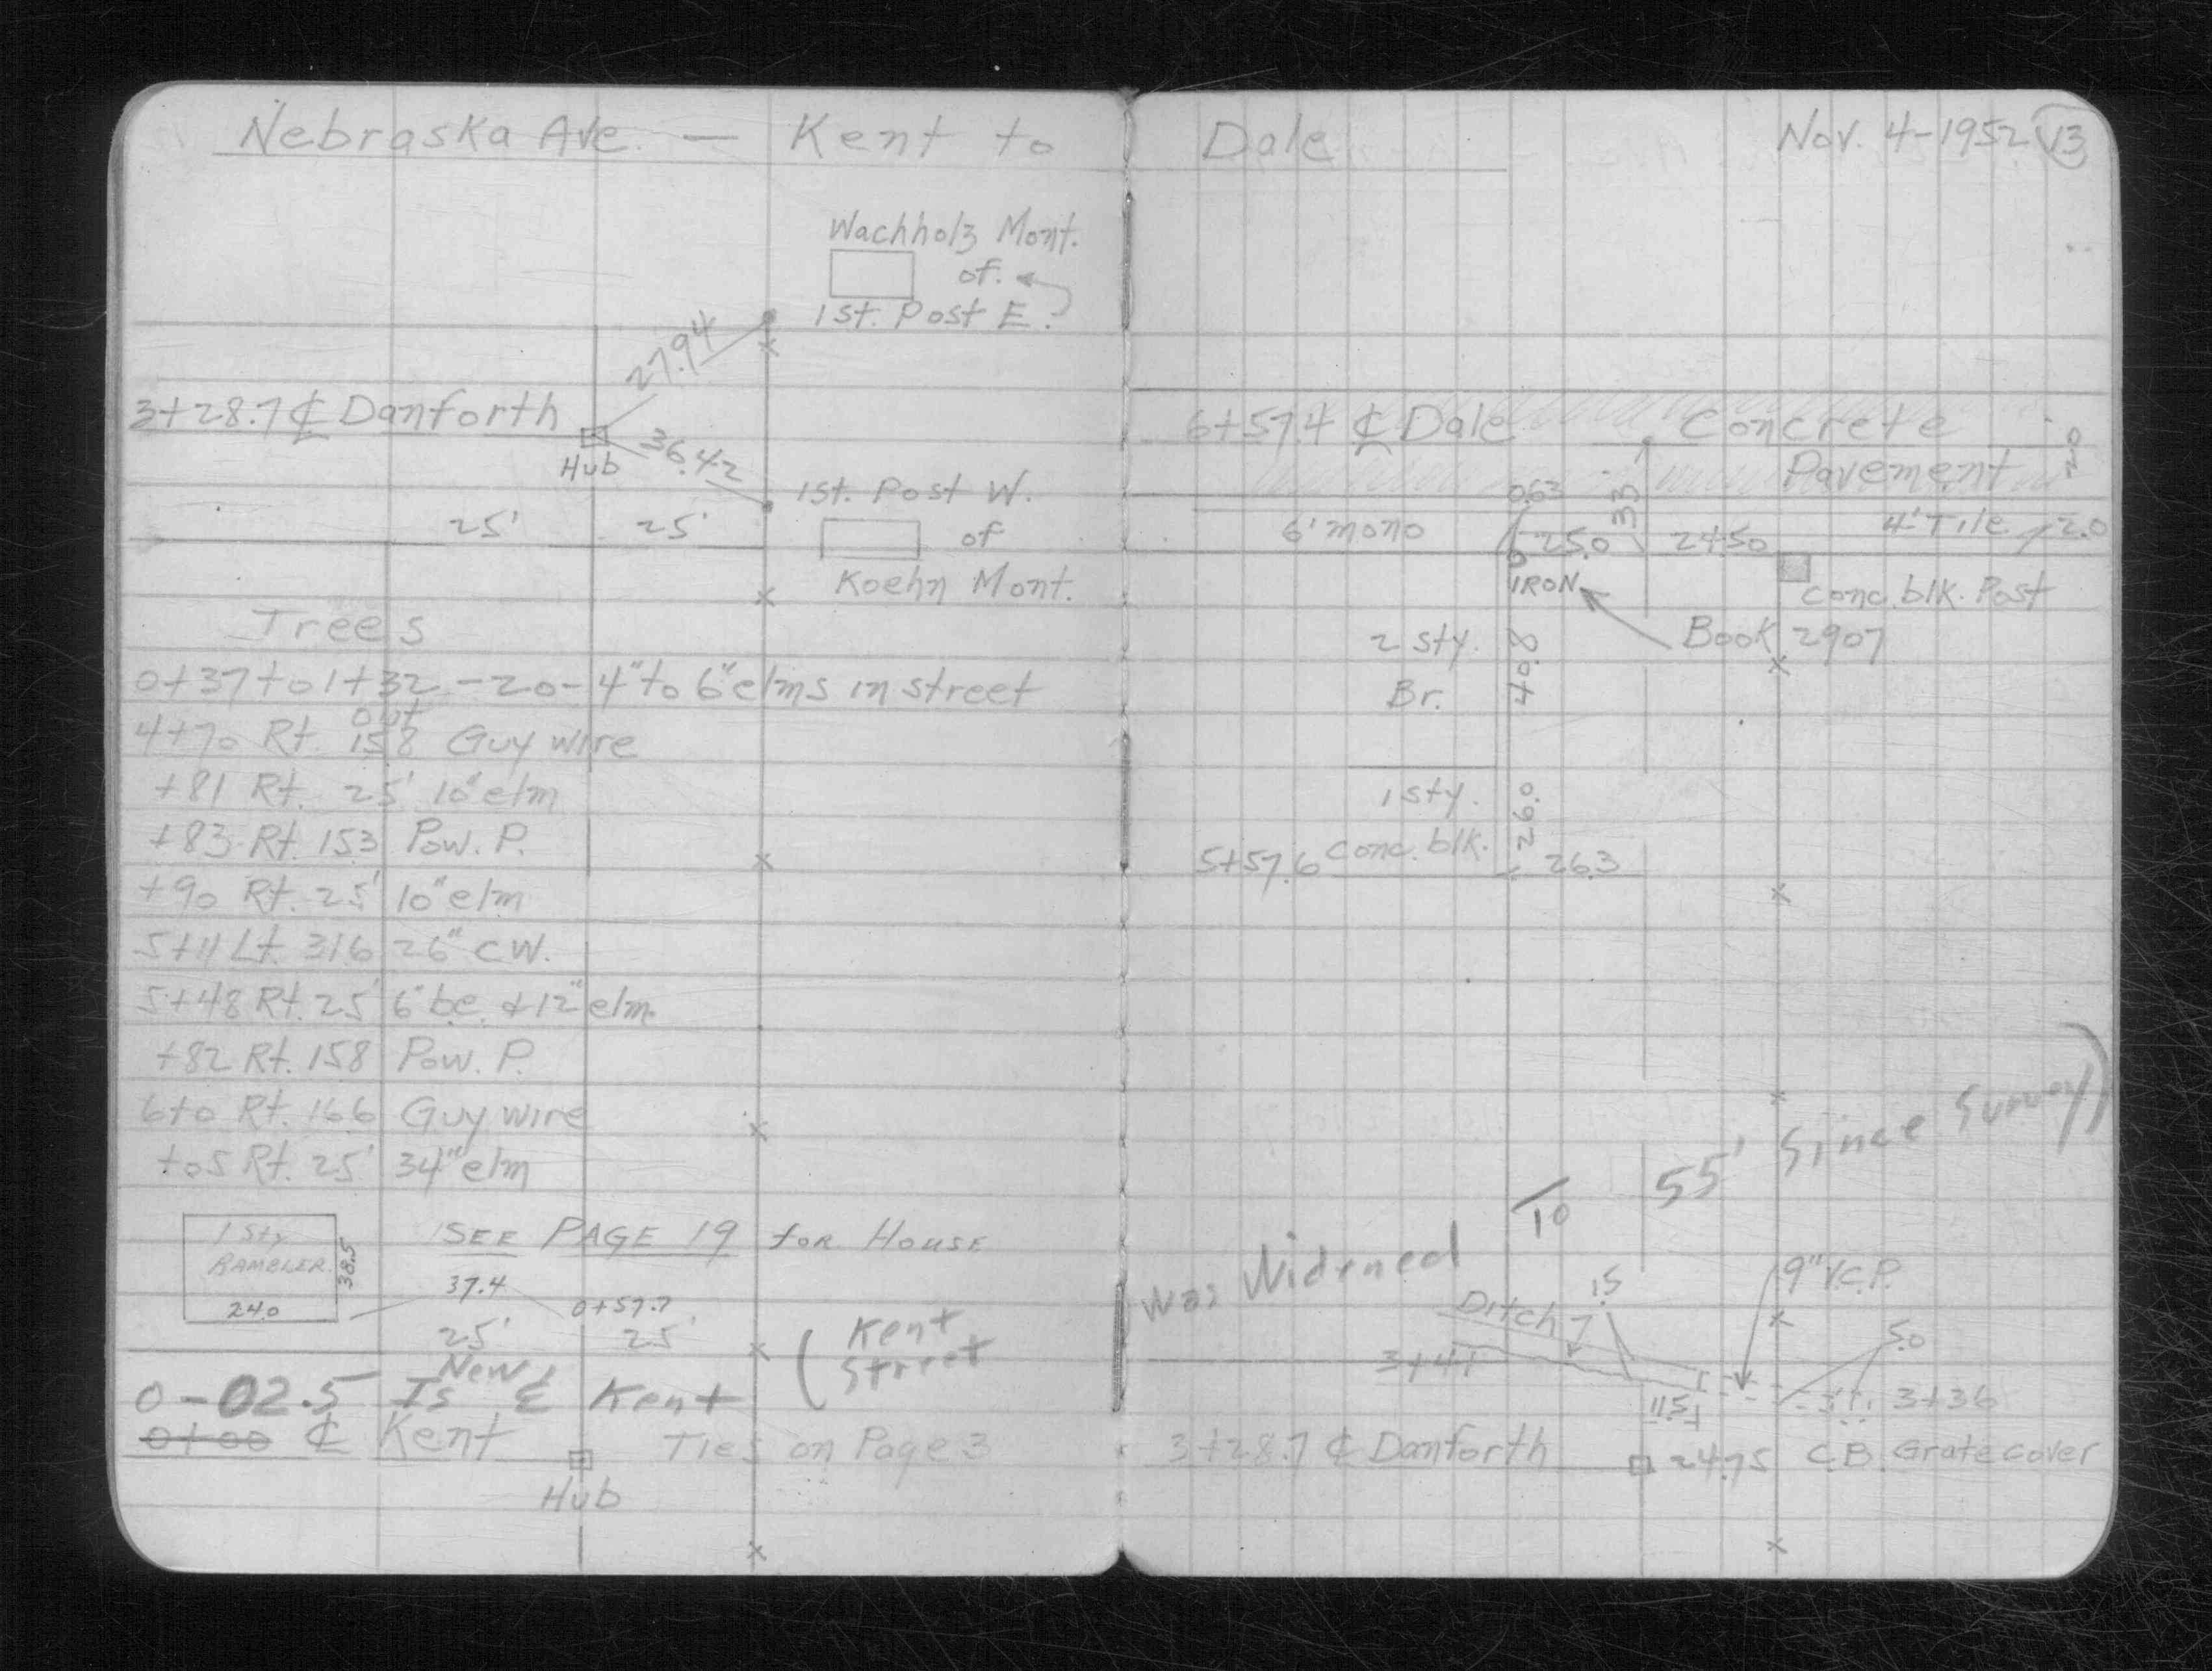 Nebraska Ave. — Kent to Dale
Nov. 4-1952 13
Wachholz Mont.
of.
1st. Post E.
27.94
3+28.7 ℄ Danforth
Hub
36.42
1st. Post W.
of
25' 25'
Koehn Mont.
Trees
0+37 to 1+32 - 20 - 4" to 6" elms in street
out
4+70 Rt. 158 Guy wire
+81 Rt. 25' 10" elm
+83 Rt. 153 Pow. P.
+90 Rt. 25' 10" elm
5+11 Lt. 316 26" CW.
5+48 Rt. 25' 6" be. & 12" elm.
+82 Rt. 158 Pow. P.
6+0 Rt. 166 Guy wire
+05 Rt. 25' 34" elm
1 Sty
RAMBLER
38.5
24.0
SEE PAGE 19 for HOUSE
37.4
0+57.7
25' 25'
(Kent
Street
New
0-02.5 Is ℄ Kent
0+00 ℄ Kent
Hub
Ties on Page 3
6+57.4 ℄ Dale
Concrete
Pavement
2.0
0.63
33
6' mono
25.0
24.50
4' Tile
2.0
IRON
conc. blk. Post
Book 2907
2 sty.
Br.
40.8
1 sty.
26.0
5+57.6 conc. blk.
26.3
was Widened To 55' Since Survey)
Ditch
1.5
9" V.C.P.
5.0
3+41
11.5
3+36
3+28.7 ℄ Danforth
24.75
C.B. Grate cover